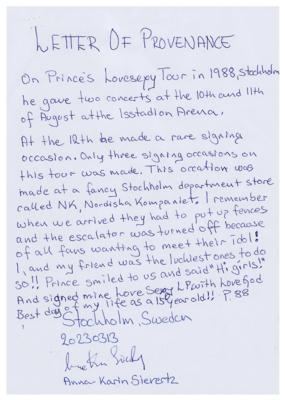 LETTER OF PROVENANCE
On Prince's Lovesexy Tour in 1988, Stockholm
he gave two concerts at the 10th and 11th
of August atthe Isstadion Arena.
At the 12th he made a rare signing
occasion. Only three signing occasions on
this tour was made. This occation was
made at a fancy Stockholm department store
called NK, Nordiska Kompaniet. I remember
when we arrived they had to put up fences
and the escalator was turned off because
of all fans wanting to meet their idol!
I, and my friend was the luckiest ones to do
so!! Prince smiled to us and said "Hi girls!"
And signed mine Love Sexy LP with Love God
Best day of my life as a 15 year old!! P.88
Stockholm, Sweden
20230313
Anna-Karin Sievertz